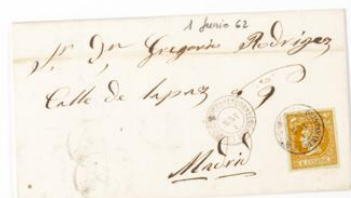 1 Junio 62
Sr. Dn Gregorio Rodriguez
Calle de la paz nº 9
Madrid